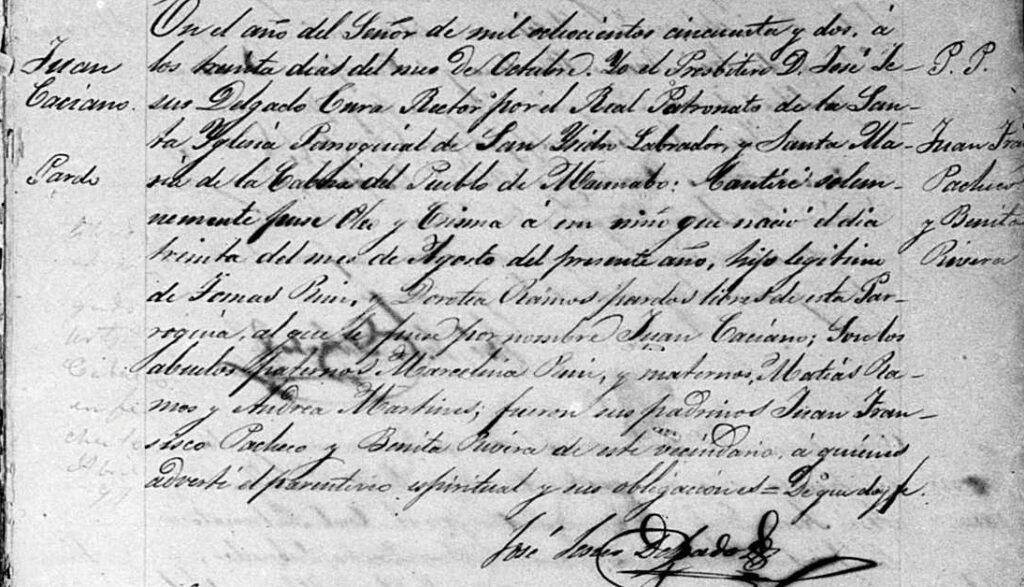 Juan
Caciano.
Pardo
En el año del Señor de mil ochocientos cincuenta y dos, á
los treinta dias del mes de Octubre. Yo el Presbítero D. José Je-
sus Delgado Cura Rector por el Real Patronato de la San-
ta Yglesia Parroquial de San Ysidro Labrador, y Santa Ma-
ria de la Cabeza del Pueblo de Maunabo: Bautisé solem-
nemente puse Oleo y Crisma á un niño que nació el dia
treinta del mes de Agosto del presente año, hijo legitimo
de Tomas y Dorotea Ramos pardos libres de esta Par-
roquia, al que se puso por nombre Juan Caciano; Son los
abuelos paternos Marcelina y maternos, Matias Ra-
mos y Andrea Martines; fueron sus padrinos Juan Fran-
sisco Pacheco y Benita Rivera de este vecindario, á quienes
advertí el parentesco espiritual y sus obligaciones = De que doy fe.
José Jesus Delgado
P. P.
Juan Fra
Pacheco
y Benita
Rivera